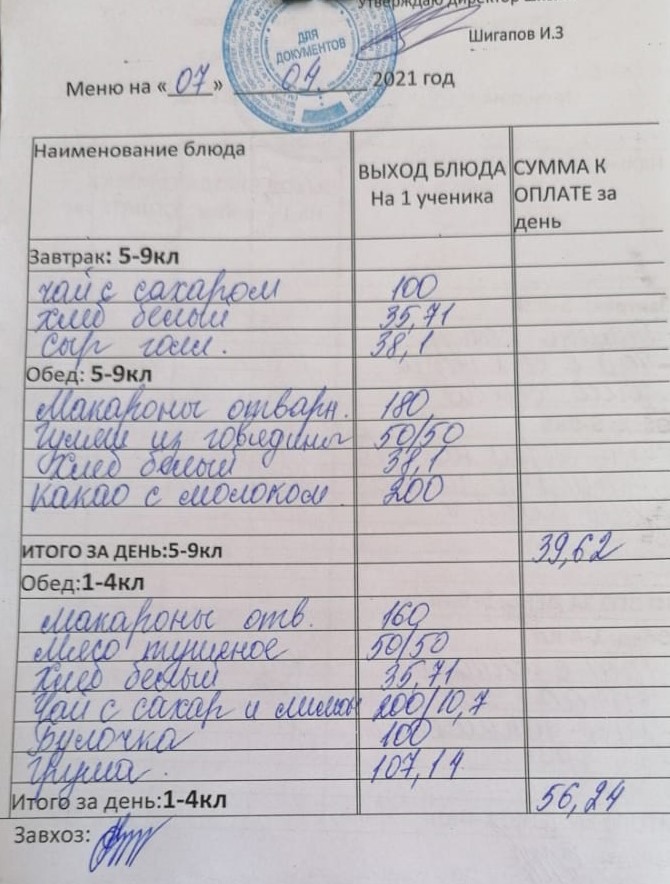 Утверждаю директор
Шигапов И.З
ДЛЯ ДОКУМЕНТОВ
Меню на «07» 04. 2021 год
Наименование блюда ВЫХОД БЛЮДА На 1 ученика СУММА К ОПЛАТЕ за день
Завтрак: 5-9кл
чай с сахаром 100
хлеб белый 35,71
сыр голл. 38,1
Обед: 5-9кл
Макароны отварн. 180
Гуляш из говядины 50/50
Хлеб белый 38,1
какао с молоком 200
ИТОГО ЗА ДЕНЬ:5-9кл 39,62
Обед:1-4кл
Макароны отв. 160
Мясо тушеное 50/50
Хлеб белый 35,71
Чай с сахар и лимон 200/10,7
Булочка 100
Груша 107,14
Итого за день:1-4кл 56,24
Завхоз: